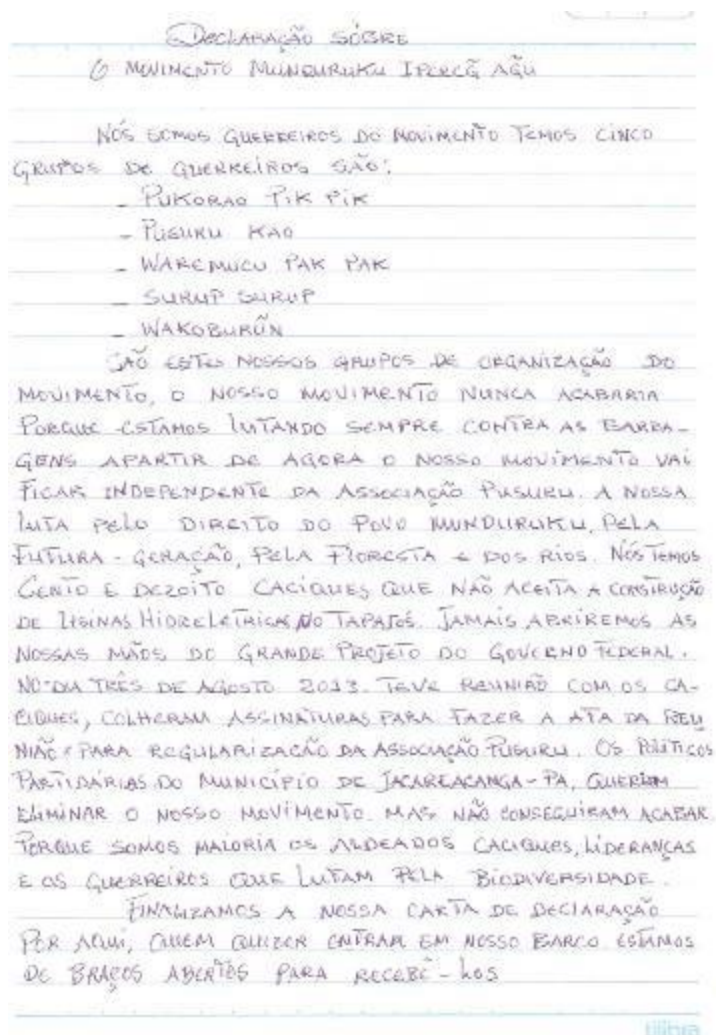 DECLARAÇÃO SÓBRE
O MOVIMENTO MUNDURUKU IPEREG̃ AG̃U
NÓS SOMOS GUERREIROS DO MOVIMENTO TEMOS CINCO
GRUPOS DE GUERREIROS SÃO:
- PUKORAO PIK PIK
- PUSURU KAO
- WAREMUCU PAK PAK
- SURUP SURUP
- WAKOBURŨN
SÃO ESTES NOSSOS GRUPOS DE ORGANIZAÇÃO DO
MOVIMENTO, O NOSSO MOVIMENTO NUNCA ACABARIA
PORQUE ESTAMOS LUTANDO SEMPRE CONTRA AS BARRA-
GENS APARTIR DE AGORA O NOSSO MOVIMENTO VAI
FICAR INDEPENDENTE DA ASSOCIAÇÃO PUSURU. A NOSSA
LUTA PELO DIREITO DO POVO MUNDURUKU, PELA
FUTURA - GERAÇÃO, PELA FLORESTA E DOS RIOS. NÓS TEMOS
CENTO E DEZOITO CACIQUES QUE NÃO ACEITA A CONSTRUÇÃO
DE USINAS HIDRELETRICAS NO TAPAJÓS. JAMAIS ABRIREMOS AS
NOSSAS MÃOS DO GRANDE PROJETO DO GOVERNO FEDERAL.
NO DIA TRÊS DE AGOSTO 2013. TEVE REUNIÃO COM OS CA-
CIQUES, COLHERAM ASSINATURAS PARA FAZER A ATA DA REU
NIÃO E PARA REGULARIZAÇÃO DA ASSOCIAÇÃO PUSURU. OS POLITICOS
PARTIDÁRIAS DO MUNICÍPIO DE JACAREACANGA-PA, QUERIAM
ELIMINAR O NOSSO MOVIMENTO. MAS NÃO CONSEGUIRAM ACABAR.
PORQUE SOMOS MAIORIA OS ALDEADOS CACIQUES, LIDERANÇAS
E OS GUERREIROS QUE LUTAM PELA BIODIVERSIDADE.
FINALIZAMOS A NOSSA CARTA DE DECLARAÇÃO
POR AQUI, QUEM QUIZER ENTRAM EM NOSSO BARCO ESTAMOS
DE BRAÇOS ABERTOS PARA RECEBÊ-LOS
tilibra